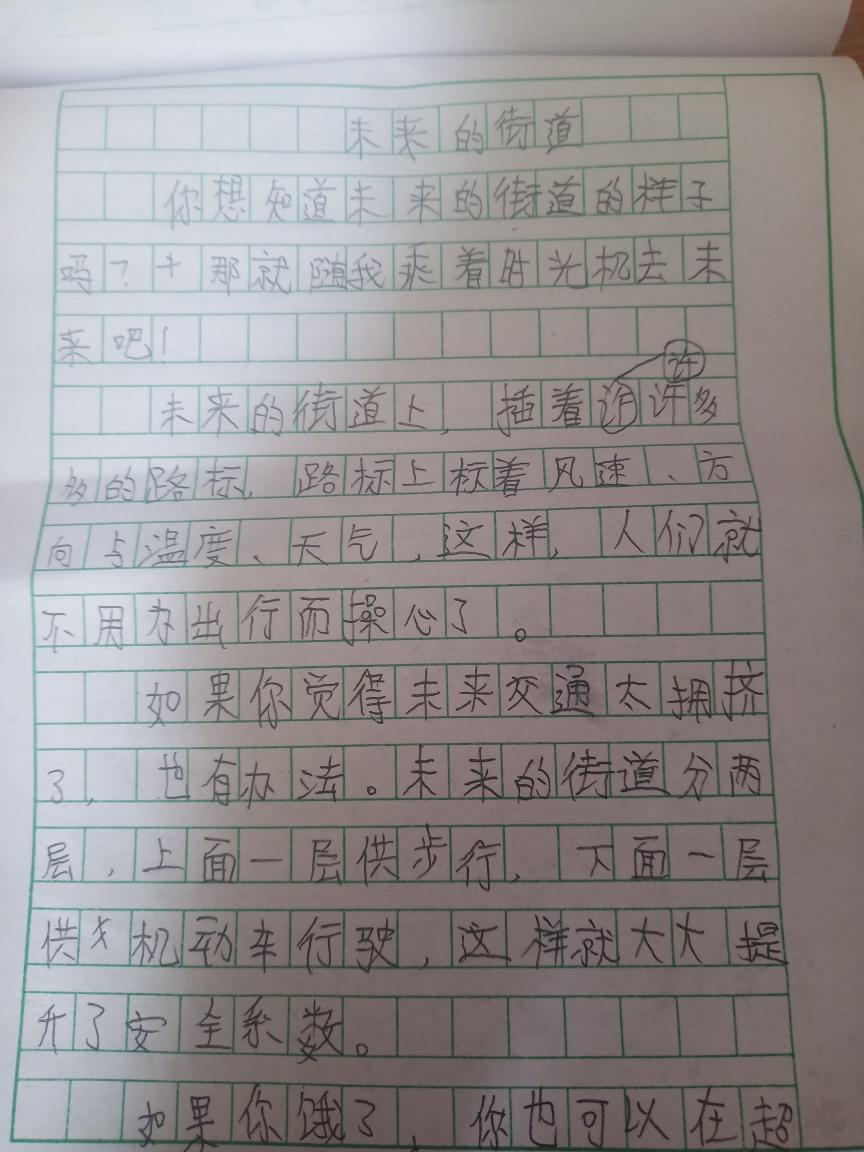 未来的街道
你想知道未来的街道的样子
吗？那就随我乘着时光机去未
来吧！
许
未来的街道上，插着许许多
多的路标，路标上标着风速、方
向与温度、天气，这样，人们就
不用为出行而操心了。
如果你觉得未来交通太拥挤
了，也有办法。未来的街道分两
层，上面一层供步行，下面一层
供机动车行驶，这样就大大提
升了安全系数。
如果你饿了，你也可以在超